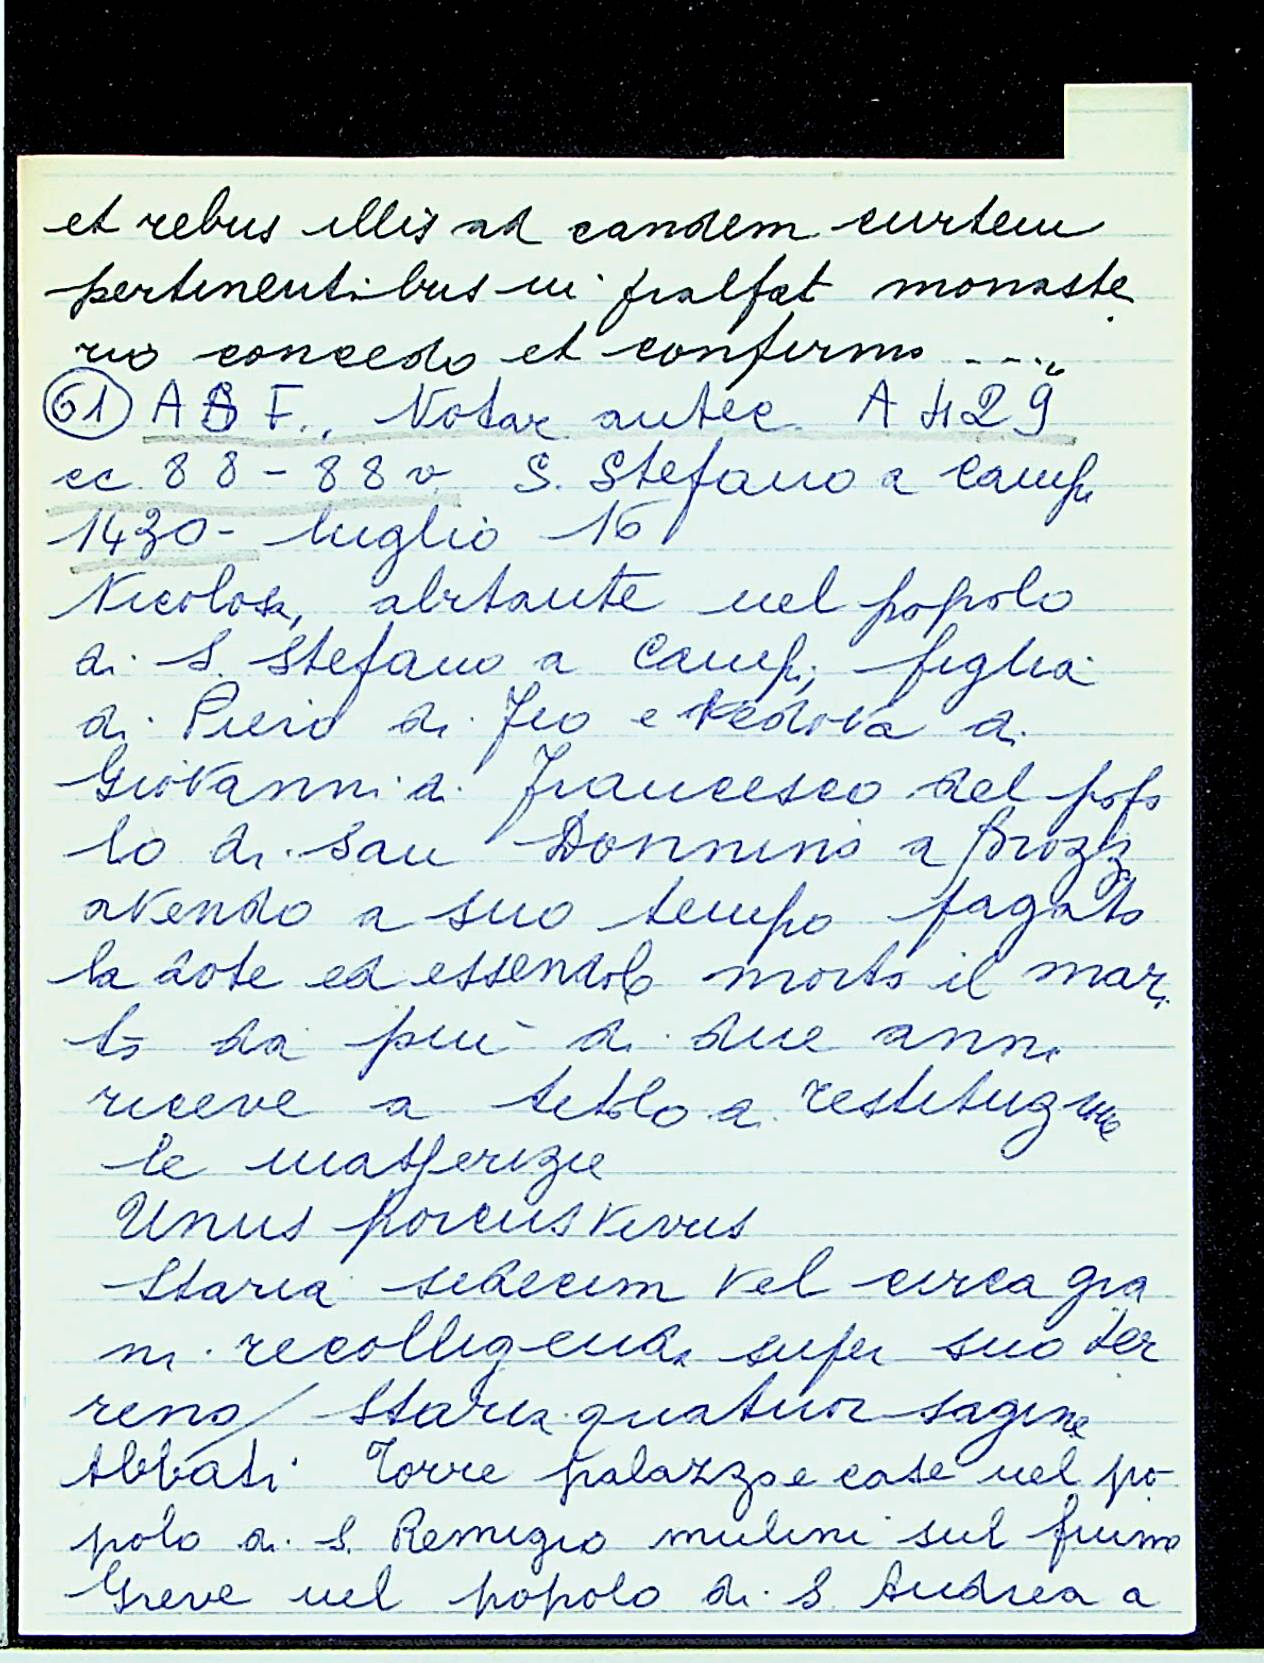 et rebus illis ad eandem curtem
pertinentibus in prelfat monaste
rio concedo et confirmo ----
61 ASF., Notar. antec. A 429
cc. 88-88v. S. Stefano a Campi
1430- luglio 16
Nicolosa, abitante nel popolo
di S. Stefano a Campi, figlia
di Piero di Feo e vedova di
Giovanni di Francesco del popo
lo di San Donnino a Brozzi
avendo a suo tempo pagato
la dote ed essendole morto il mari
to da più di due anni
riceve a titolo di restituzione
le masserizie
Unus porcus vivus
Staria sedecim vel circa gra
ni recolligendi super suo ter
reno / Staria quatuor sagine
Abbati Torre palazzo e case nel po-
polo di S. Remigio mulini sul fiume
Greve nel popolo di S. Andrea a